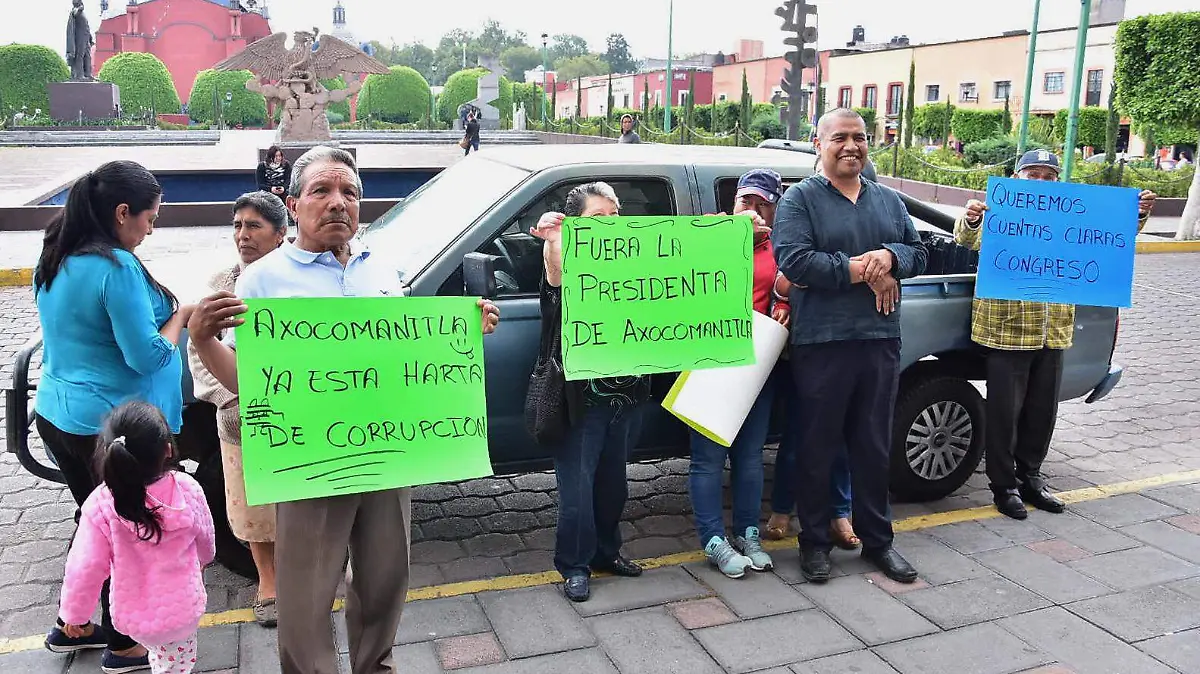 AXOCOMANITLA
YA ESTA HARTA
DE CORRUPCION
FUERA LA
PRESIDENTA
DE AXOCOMANITLA
QUEREMOS
CUENTAS CLARAS
CONGRESO